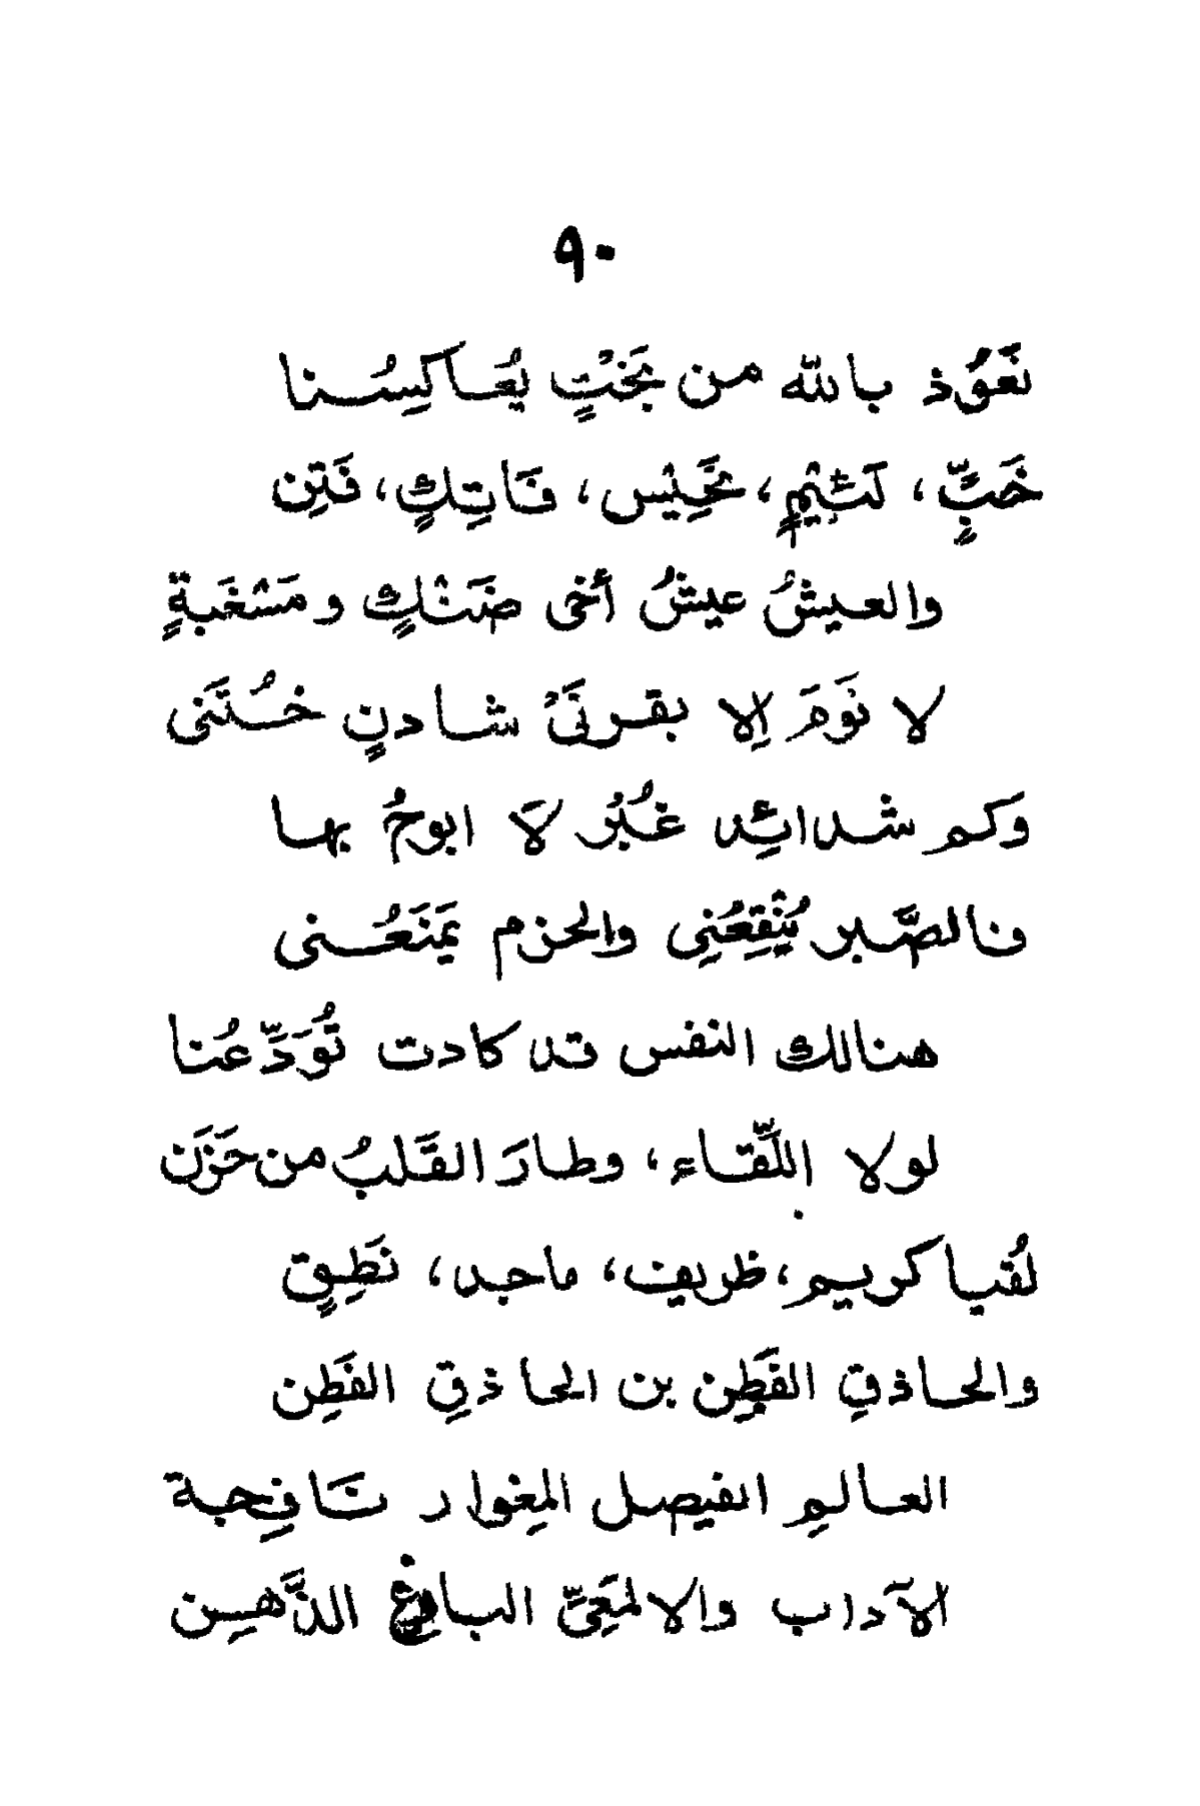 ٩٠
نَعَوُذ بالله من بَخْتٍ يُعَاكِسُنا
خَبٍّ، لَئِيمٍ، نَحِيْس، فَاتِكٍ، فَتِن
والعيشُ عيشُ أخى ضَنْكٍ ومَسْغَبةٍ
لا نَوَمَ إلا بقرنَىْ شادنٍ خُتَنى
وَكم شدائِد غُبْرُ لاَ ابوحُ بها
فالصَّبر يُنْقِعُنِى والحزم يَمنَعُنى
هنالك النفس قد كادت تُوَدِّعُنا
لولا اللِّقاء، وطارَ القَلبُ من حَزَن
لُقيا كريم، ظريف، ماجد، نَطِقٍ
والحاذقِ الفَطِن بن الحاذقِ الفَطِن
العالمِ الفيصل المِغوار نَافِحة
الآداب والالمَعِىِّ البارِغ الذَّهِن